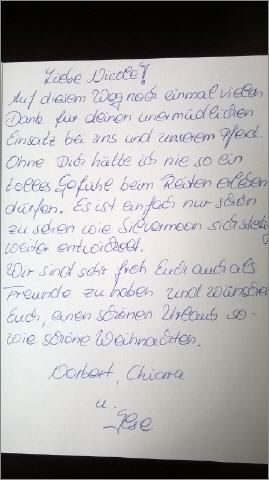 Liebe Nicole!
Auf diesem Weg noch einmal vielen
Dank für deinen unermüdlichen
Einsatz bei uns und unserem Pferd.
Ohne Dich hätte ich nie so ein
tolles Gefühl beim Reiten erleben
dürfen. Es ist einfach nur schön
zu sehen wie Silvermoon sich stetig
weiter entwickelt.
Wir sind sehr froh Euch auch als
Freunde zu haben und wünschen
Euch, einen schönen Urlaub so-
wie schöne Weihnachten.
Norbert, Chiara
u.